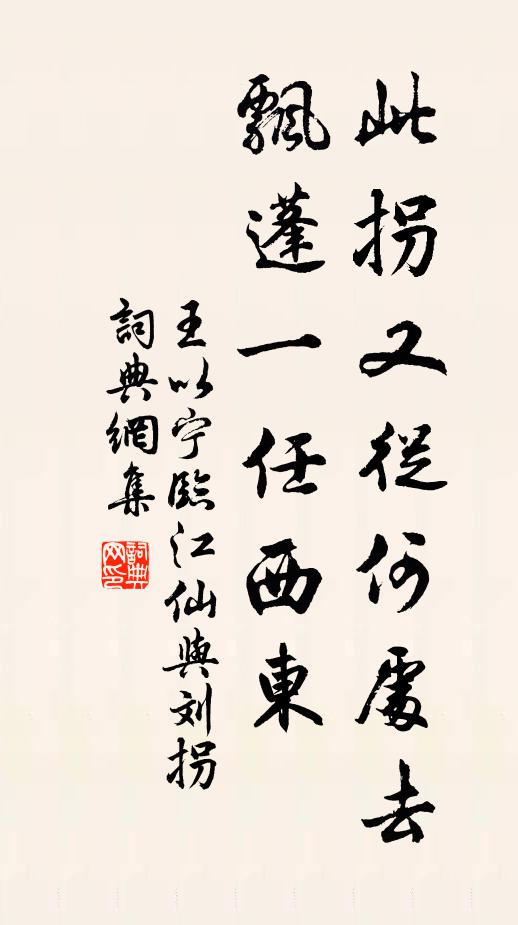 此拐又從何處去
飄蓬一任西東
王以宁臨江仙與刘拐
詞典網集
詞典網印